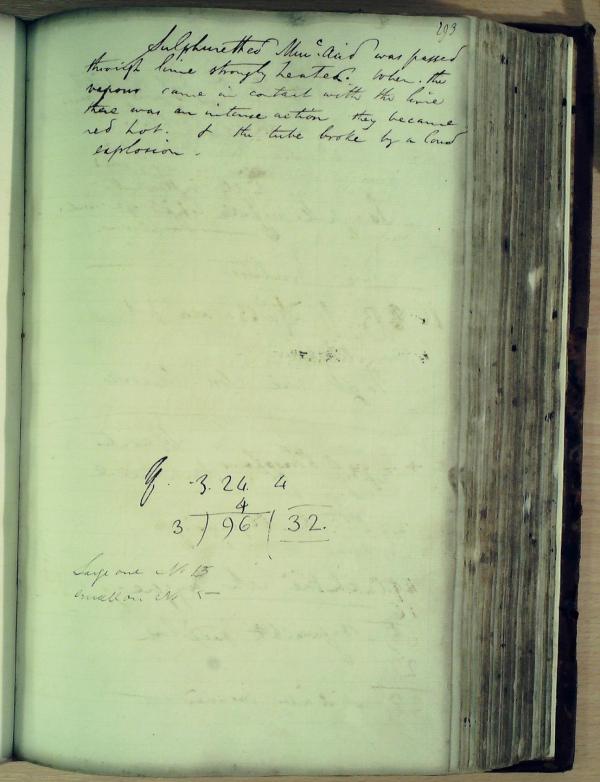 293
Sulphuretted Mur.c Acid was passed
through lime strongly heated. When the
vapour came in contact with the lime
there was an intense action they became
red hot. & the tube broke by a loud
explosion.
3. 24 4
4
3 ) 96 ( 32.
Large one No 15
small one No 5